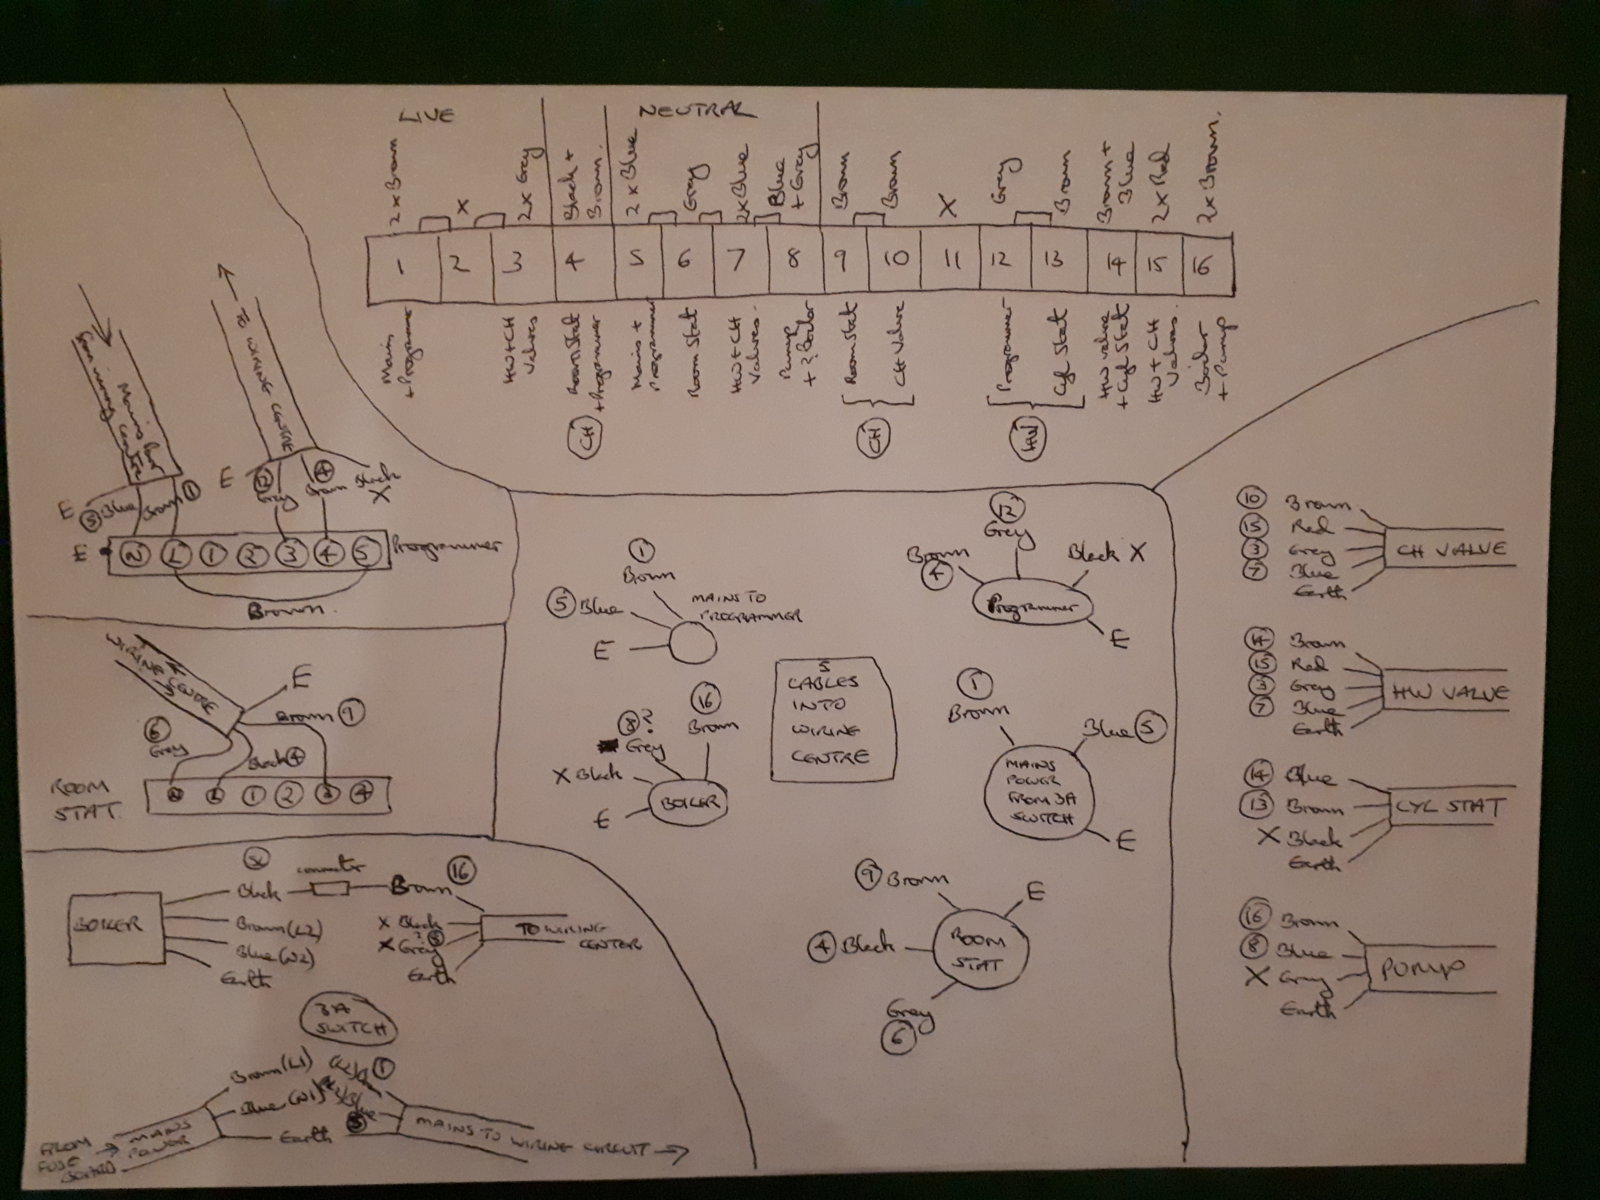 LIVE
NEUTRAL
2 x Brown
X
2 x Grey
Black +
Brown.
2 x Blue
Grey
2x Blue
Blue
+ Grey
Brown
Brown
X
Grey
Brown
Brown +
Blue
2 x Red
2 x Brown.
1 2 3 4 5 6 7 8 9 10 11 12 13 14 15 16
Mains
+ Programmer
HW + CH
Valves
Room Stat
+ Programmer
Mains +
Programmer
Room Stat
HW + CH
Valves.
Pump
+ ? Boiler
Room Stat
CH Valve
Programmer
Cyl Stat
HW valve
+ Cyl Stat
HW + CH
Valves.
Boiler
+ Pump
CH
CH
HW
TO WIRING CENTRE
E
5 Blue
Brown 1
E
12
Grey
4
Brown
Black
X
E
N L 1 2 3 4 5
Programmer
Brown.
WIRING CENTRE
E
Brown 9
6
Grey
Black 4
ROOM
STAT.
N L 1 2 3 4
1
Brown
5 Blue
MAINS TO
PROGRAMMER
E
12
Grey
Brown
4
Black X
Programmer
E
5
CABLES
INTO
WIRING
CENTRE
16
Brown
8 ?
Grey
X Black
BOILER
E
1
Brown
Blue 5
MAINS
POWER
FROM 3A
SWITCH
E
9 Brown
E
4 Black
ROOM
STAT
Grey
6
10 Brown
15 Red
3 Grey
7 Blue
Earth
CH VALVE
14 Brown
15 Red
3 Grey
7 Blue
Earth
HW VALVE
14 Blue
13 Brown
X Black
Earth
CYL STAT
16 Brown
8 Blue
X Grey
Earth
PUMP
BOILER
Black
connector
Brown
16
Brown (L2)
Blue (N2)
Earth
X Black
X Grey
?
8
Earth
TO WIRING
CENTER
3A
SWITCH
Brown (L1)
1
Blue (N1)
5
Earth
FROM
FUSE
BOARD
MAINS
POWER
MAINS TO WIRING CIRCUIT